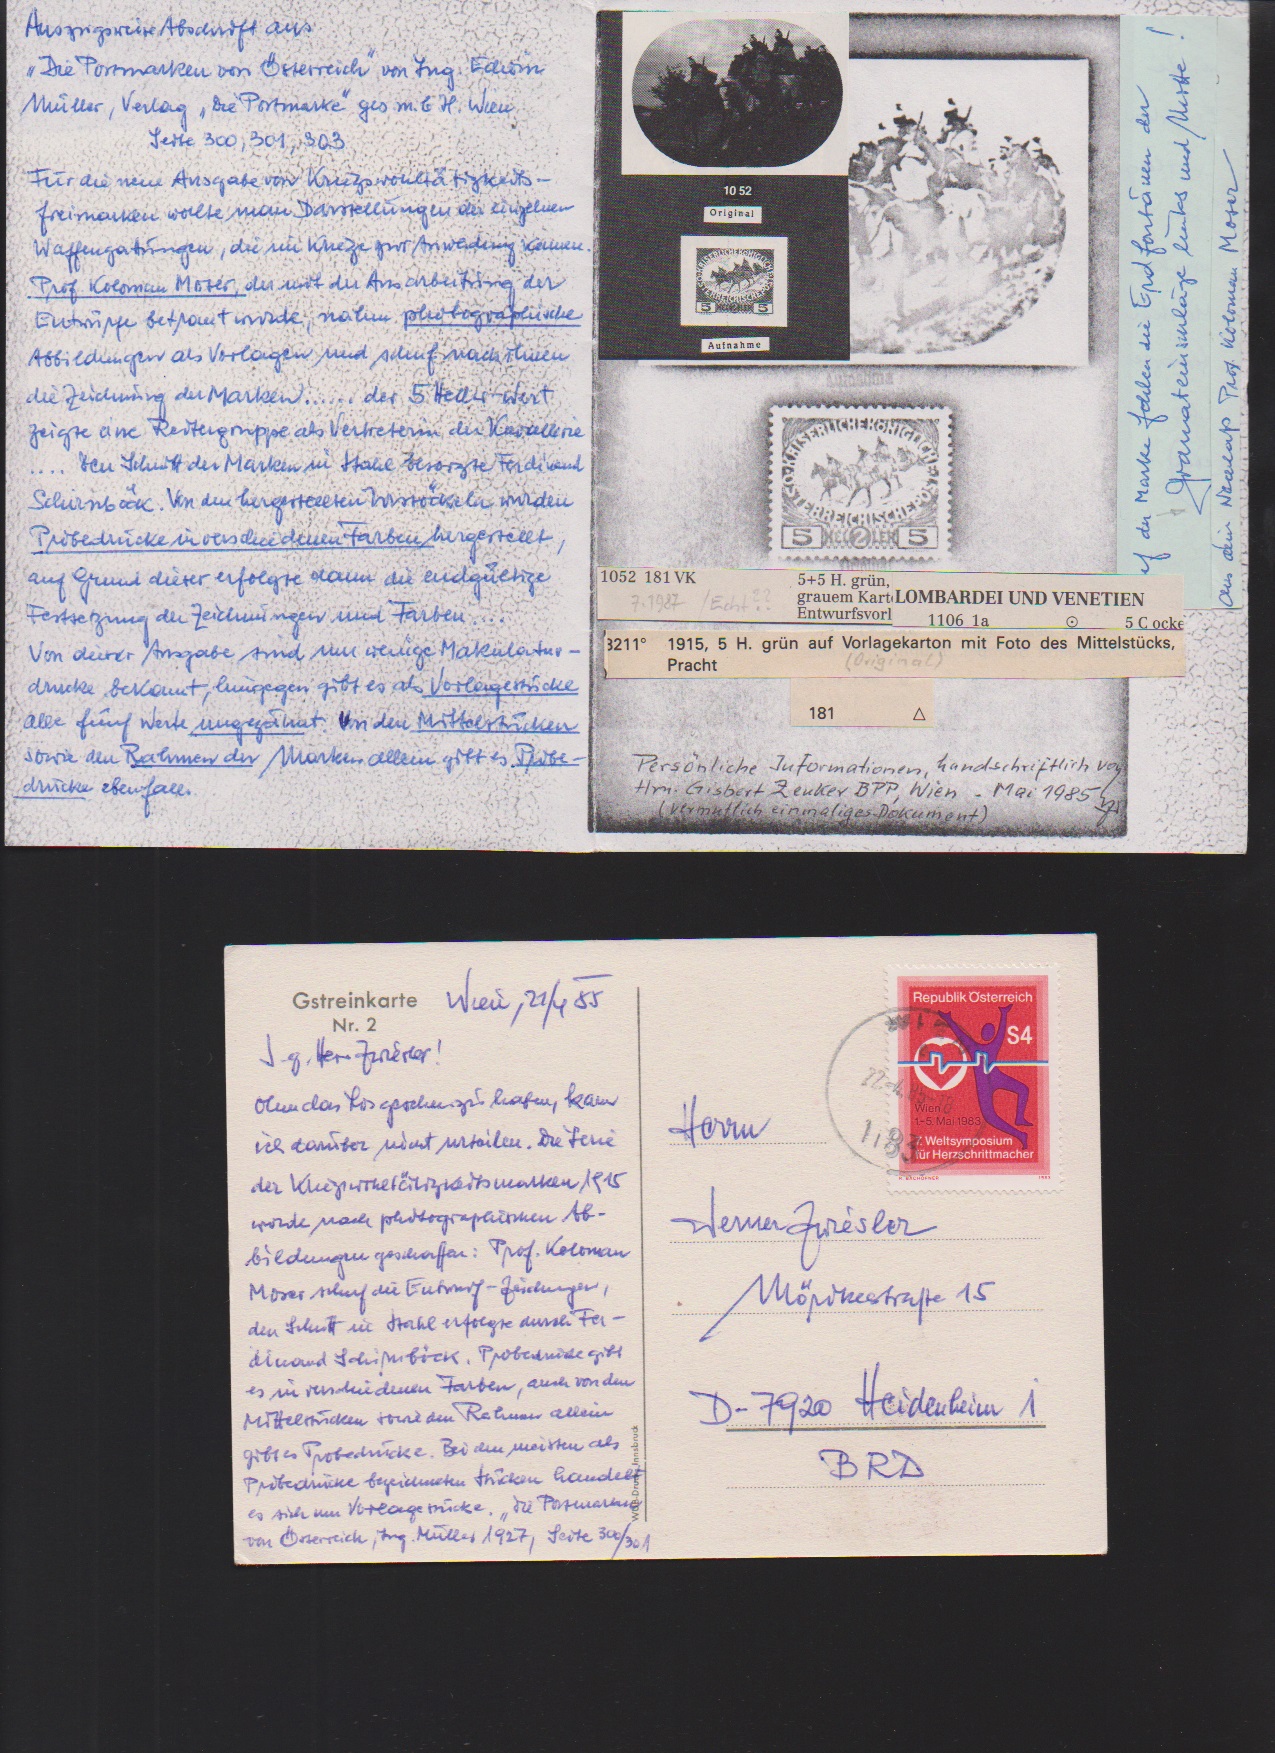 Auszugsweise Abschrift aus
„Die Postmarken von Österreich" von Ing. Edwin
Müller, Verlag „Die Postmarke" ges.m.b.H. Wien
Seite 300, 301, 303
Für die neue Ausgabe von Kriegswohltätigkeits-
freimarken wollte man Darstellungen der einzelnen
Waffengattungen, die im Kriege zur Anwendung kamen.
Prof. Koloman Moser, der mit der Ausarbeitung der
Entwürfe betraut wurde, nahm photographische
Abbildungen als Vorlagen und schuf nach ihnen
die Zeichnung der Marken...... der 5 Heller-Wert
zeigte eine Reitergruppe als Vertreterin der Kavallerie
.... Den Schnitt der Marken in Stahl besorgte Ferdinand
Schirnböck. Von den hergestellten Urstöckeln wurden
Probedrucke in verschiedenen Farben hergestellt,
auf Grund dieser erfolgte dann die endgültige
Festsetzung der Zeichnungen und Farben....
Von dieser Ausgabe sind nur wenige Makulatur-
drucke bekannt, hingegen gibt es als Vorlagestücke
alle fünf Werte ungezähnt. Von den Mittelstücken
sowie den Rahmen der Marken allein gibt es Probe-
drucke ebenfalls.
10 52
Original
KAISERLICHEKÖNIGLICHE
ÖSTERREICHISCHEPOST
5 HELLER 5
Aufnahme
Aufnahme
KAISERLICHEKÖNIGLICHE
ÖSTERREICHISCHEPOST
5 HELLER 5
2
1052 181 VK
7.1987 / Echt??
5+5 H. grün,
grauem Kart
Entwurfsvorl
LOMBARDEI UND VENETIEN
1106 1a ⊙ 5 C ocke
3211° 1915, 5 H. grün auf Vorlagekarton mit Foto des Mittelstücks,
Pracht
(Original)
181 △
Persönliche Informationen, handschriftlich von
Hrn. Gisbert Zenker BPP, Wien - Mai 1985
(vermutlich einmaliges Dokument)
auf der Marke fehlen die Erdfontänen der
Granateinschläge links und Mitte!
aus dem Nachlaß Prof. Koloman Moser
Gstreinkarte
Nr. 2
Wien, 21/4 85
S. g. Herr Zwiesler!
Ohne das Los gesehen zu haben, kann
ich darüber nicht urteilen. Die Serie
der Kriegswohltätigkeitsmarken 1915
wurde nach photographischen Ab-
bildungen geschaffen: Prof. Koloman
Moser schuf die Entwurf-Zeichnungen,
den Schnitt in Stahl erfolgte durch Fer-
dinand Schirnböck. Probedrucke gibt
es in verschiedenen Farben, auch von den
Mittelstücken sowie den Rahmen allein
gibt es Probedrucke. Bei den meisten als
Probedrucke bezeichneten Stücken handelt
es sich um Vorlagestücke. „Die Postmarken
von Österreich, Ing. Müller 1927, Seite 300/301
Innsbruck
Republik Österreich
S4
Wien
1.-5. Mai 1983
Weltsymposium
für Herzschrittmacher
Herrn
Werner Zwiesler
Mörikestraße 15
D-7920 Heidenheim 1
BRD